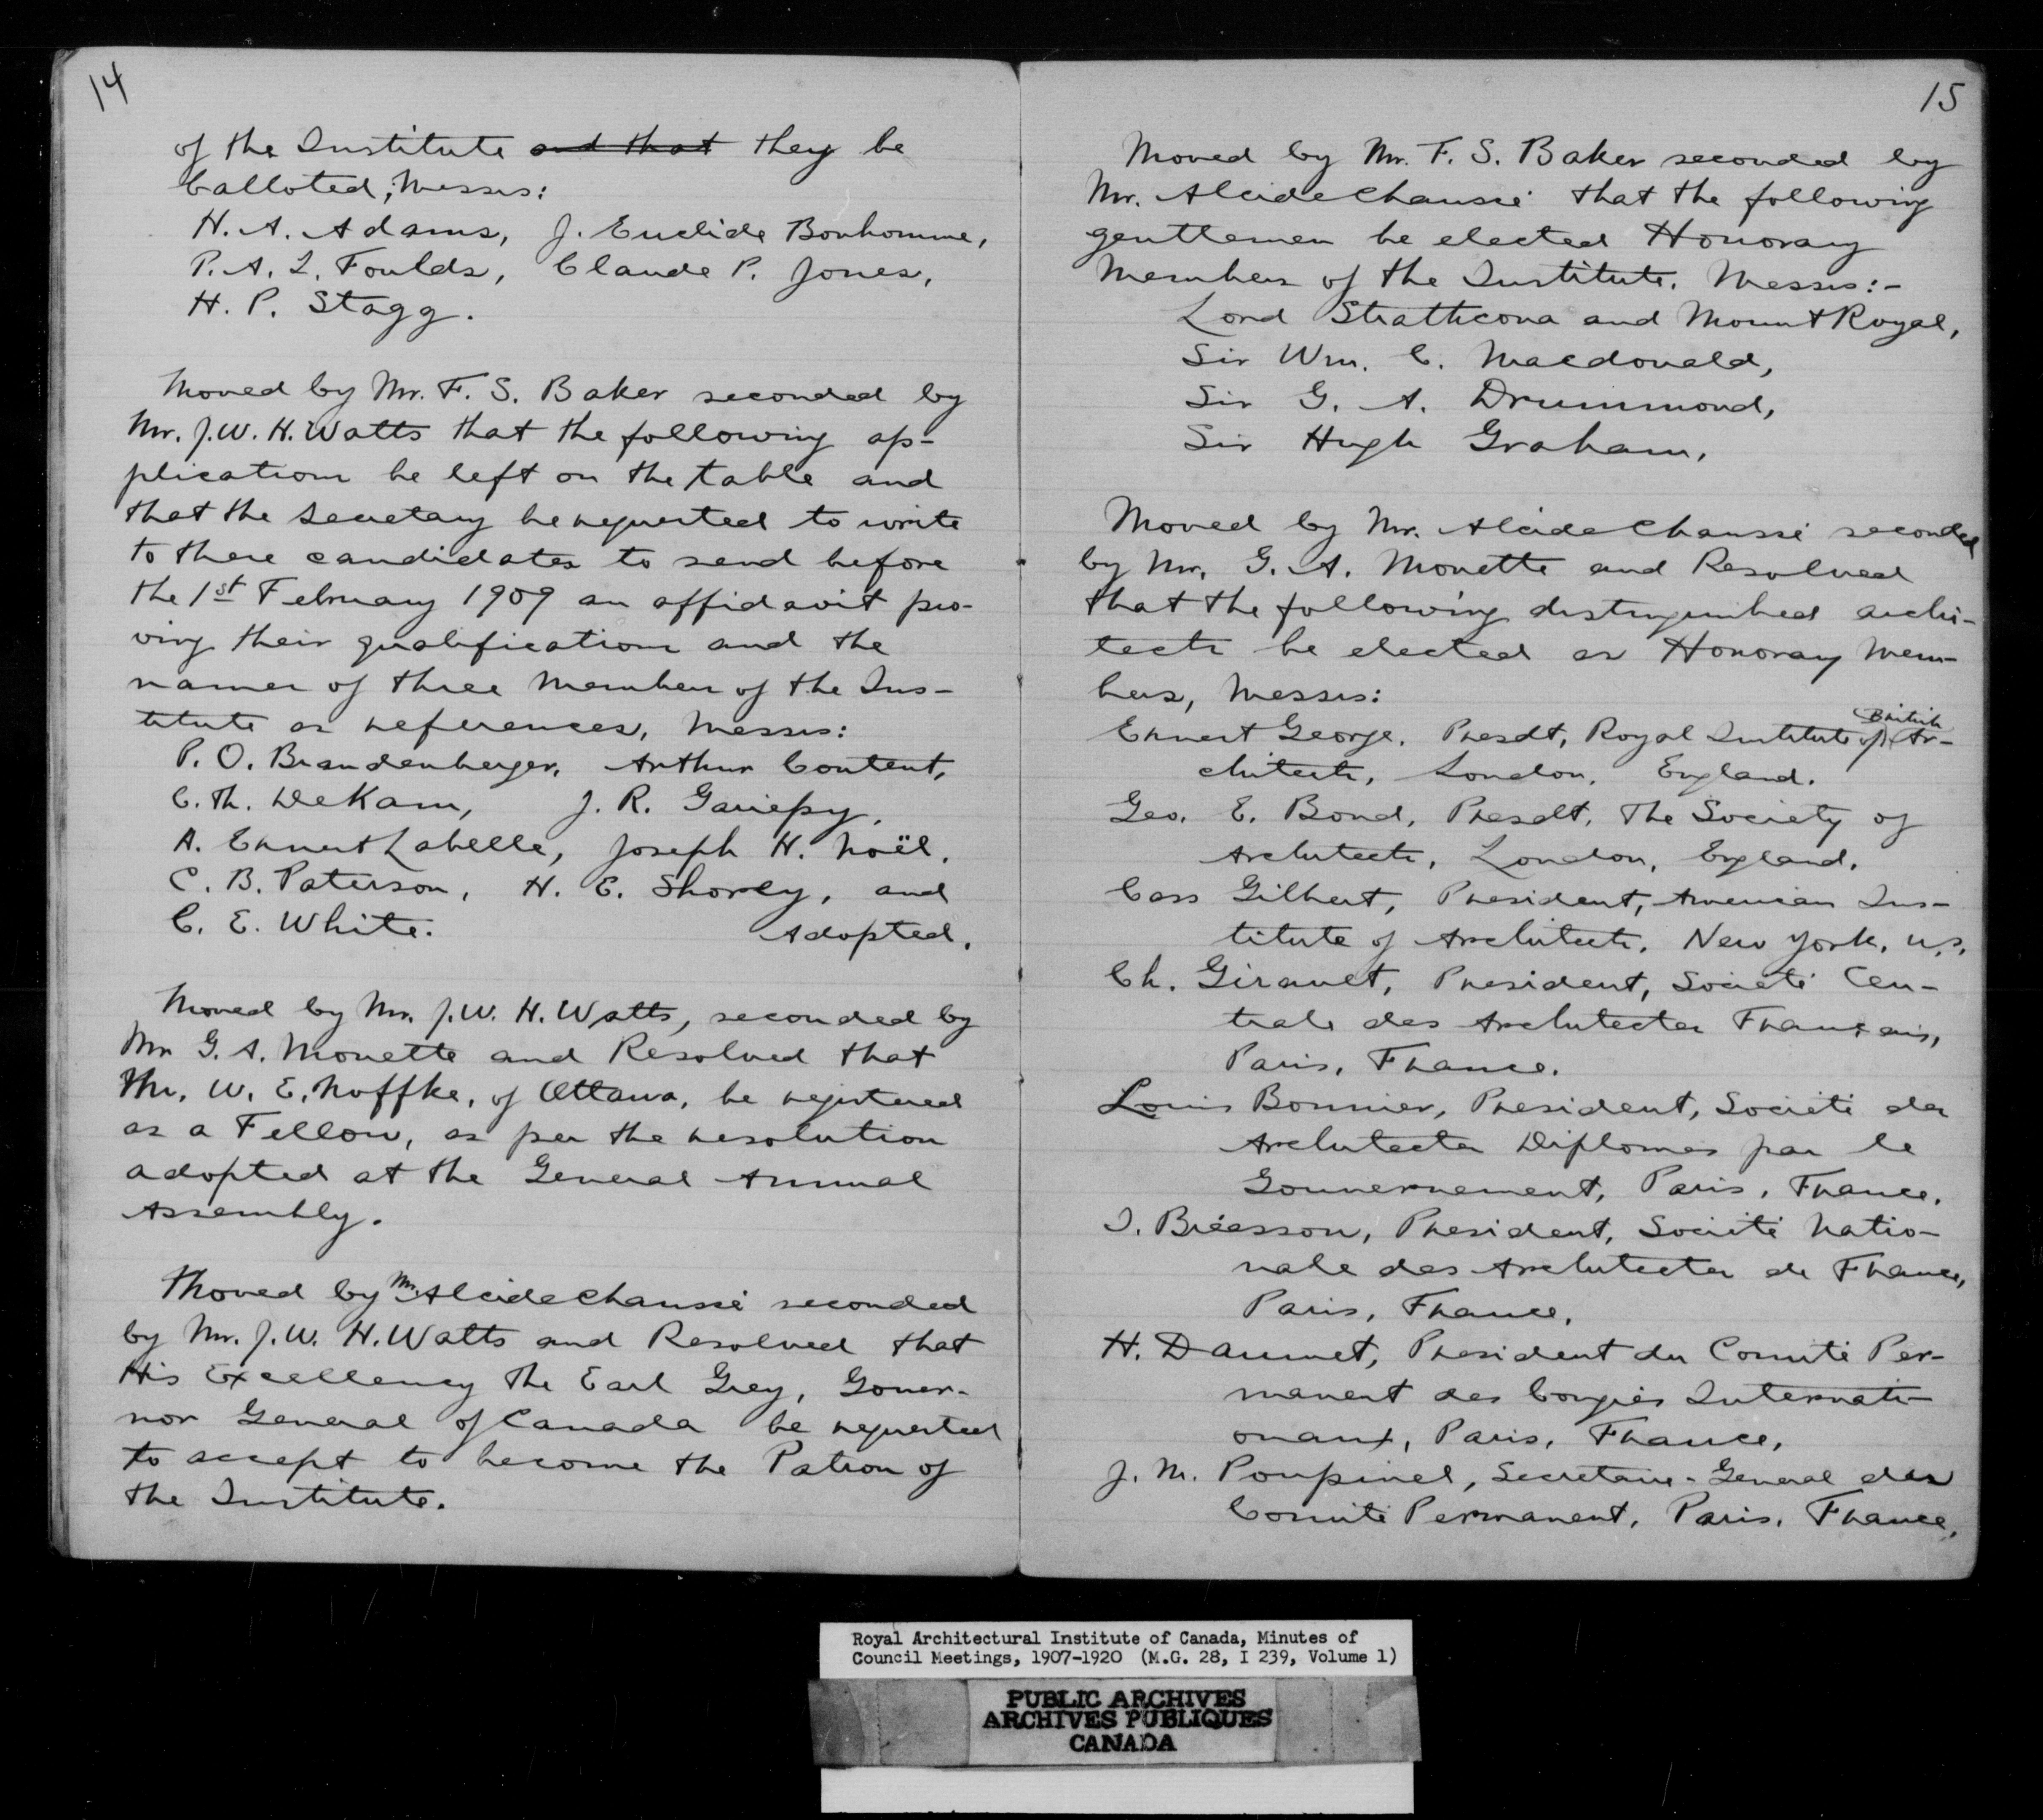 14
of the Institute and that they be
balloted, Messrs:
H. A. Adams, J. Euclide Bonhomme,
P. A. L. Foulds, Claude P. Jones,
H. P. Stagg.
Moved by Mr. F. S. Baker seconded by
Mr. J. W. H. Watts that the following ap-
plications be left on the table and
that the Secretary be requested to write
to these candidates to send before
the 1st February 1909 an affidavit pro-
ving their qualifications and the
names of three members of the Ins-
titute as references, Messrs:
P. O. Brandenberger, Arthur Content,
C. Th. DeKam, J. R. Gariepy,
A. Ernest Labelle, Joseph H. Noël,
C. B. Paterson, H. E. Shorey, and
C. E. White. Adopted.
Moved by Mr. J. W. H. Watts, seconded by
Mr G. A. Monette and Resolved that
Mr. W. E. Noffke, of Ottawa, be registered
as a Fellow, as per the resolution
adopted at the General Annual
Assembly.
Moved by Mr. Alcide Chaussé seconded
by Mr. J. W. H. Watts and Resolved that
His Excellency the Earl Grey, Gover-
nor General of Canada be requested
to accept to become the Patron of
the Institute.
15
Moved by Mr. F. S. Baker seconded by
Mr. Alcide Chaussé that the following
gentlemen be elected Honorary
Members of the Institute. Messrs:-
Lord Strathcona and Mount Royal,
Sir Wm. C. Macdonald,
Sir G. A. Drummond,
Sir Hugh Graham.
Moved by Mr. Alcide Chaussé seconded
by Mr. G. A. Monette and Resolved
that the following distinguished archi-
tects be elected as Honorary Mem-
bers, Messrs:
Ernest George, Presdt, Royal Institute of British Ar-
chitects, London, England.
Geo. E. Bond, Presdt. The Society of
Architects, London, England.
Cass Gilbert, President, American Ins-
titute of Architects, New York, U.S.
Ch. Girault, President, Société Cen-
trale des Architectes Français,
Paris, France.
Louis Bonnier, President, Société des
Architectes Diplomés par le
Gouvernement, Paris, France.
I. Bréasson, President, Société Natio-
nale des Architectes de France,
Paris, France.
H. Daumet, President du Comité Per-
manent des Congrès Internati-
onaux, Paris, France.
J. M. Poupinel, Secretaire-General des
Comité Permanent, Paris, France.
Royal Architectural Institute of Canada, Minutes of
Council Meetings, 1907-1920 (M.G. 28, I 239, Volume 1)
PUBLIC ARCHIVES
ARCHIVES PUBLIQUES
CANADA